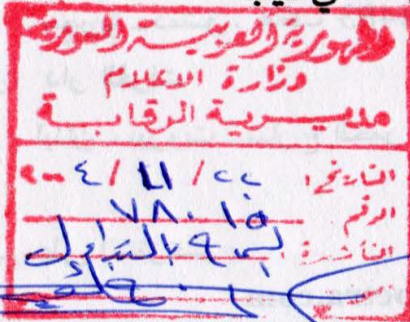 الجمهورية العربية السورية
وزارة الاعلام
مديرية الرقابة
التاريخ: ٢٢ / ١١ / ٢٠٠٤
الرقم ٧٨٠١٥
التأشيرة يسمح بالتداول